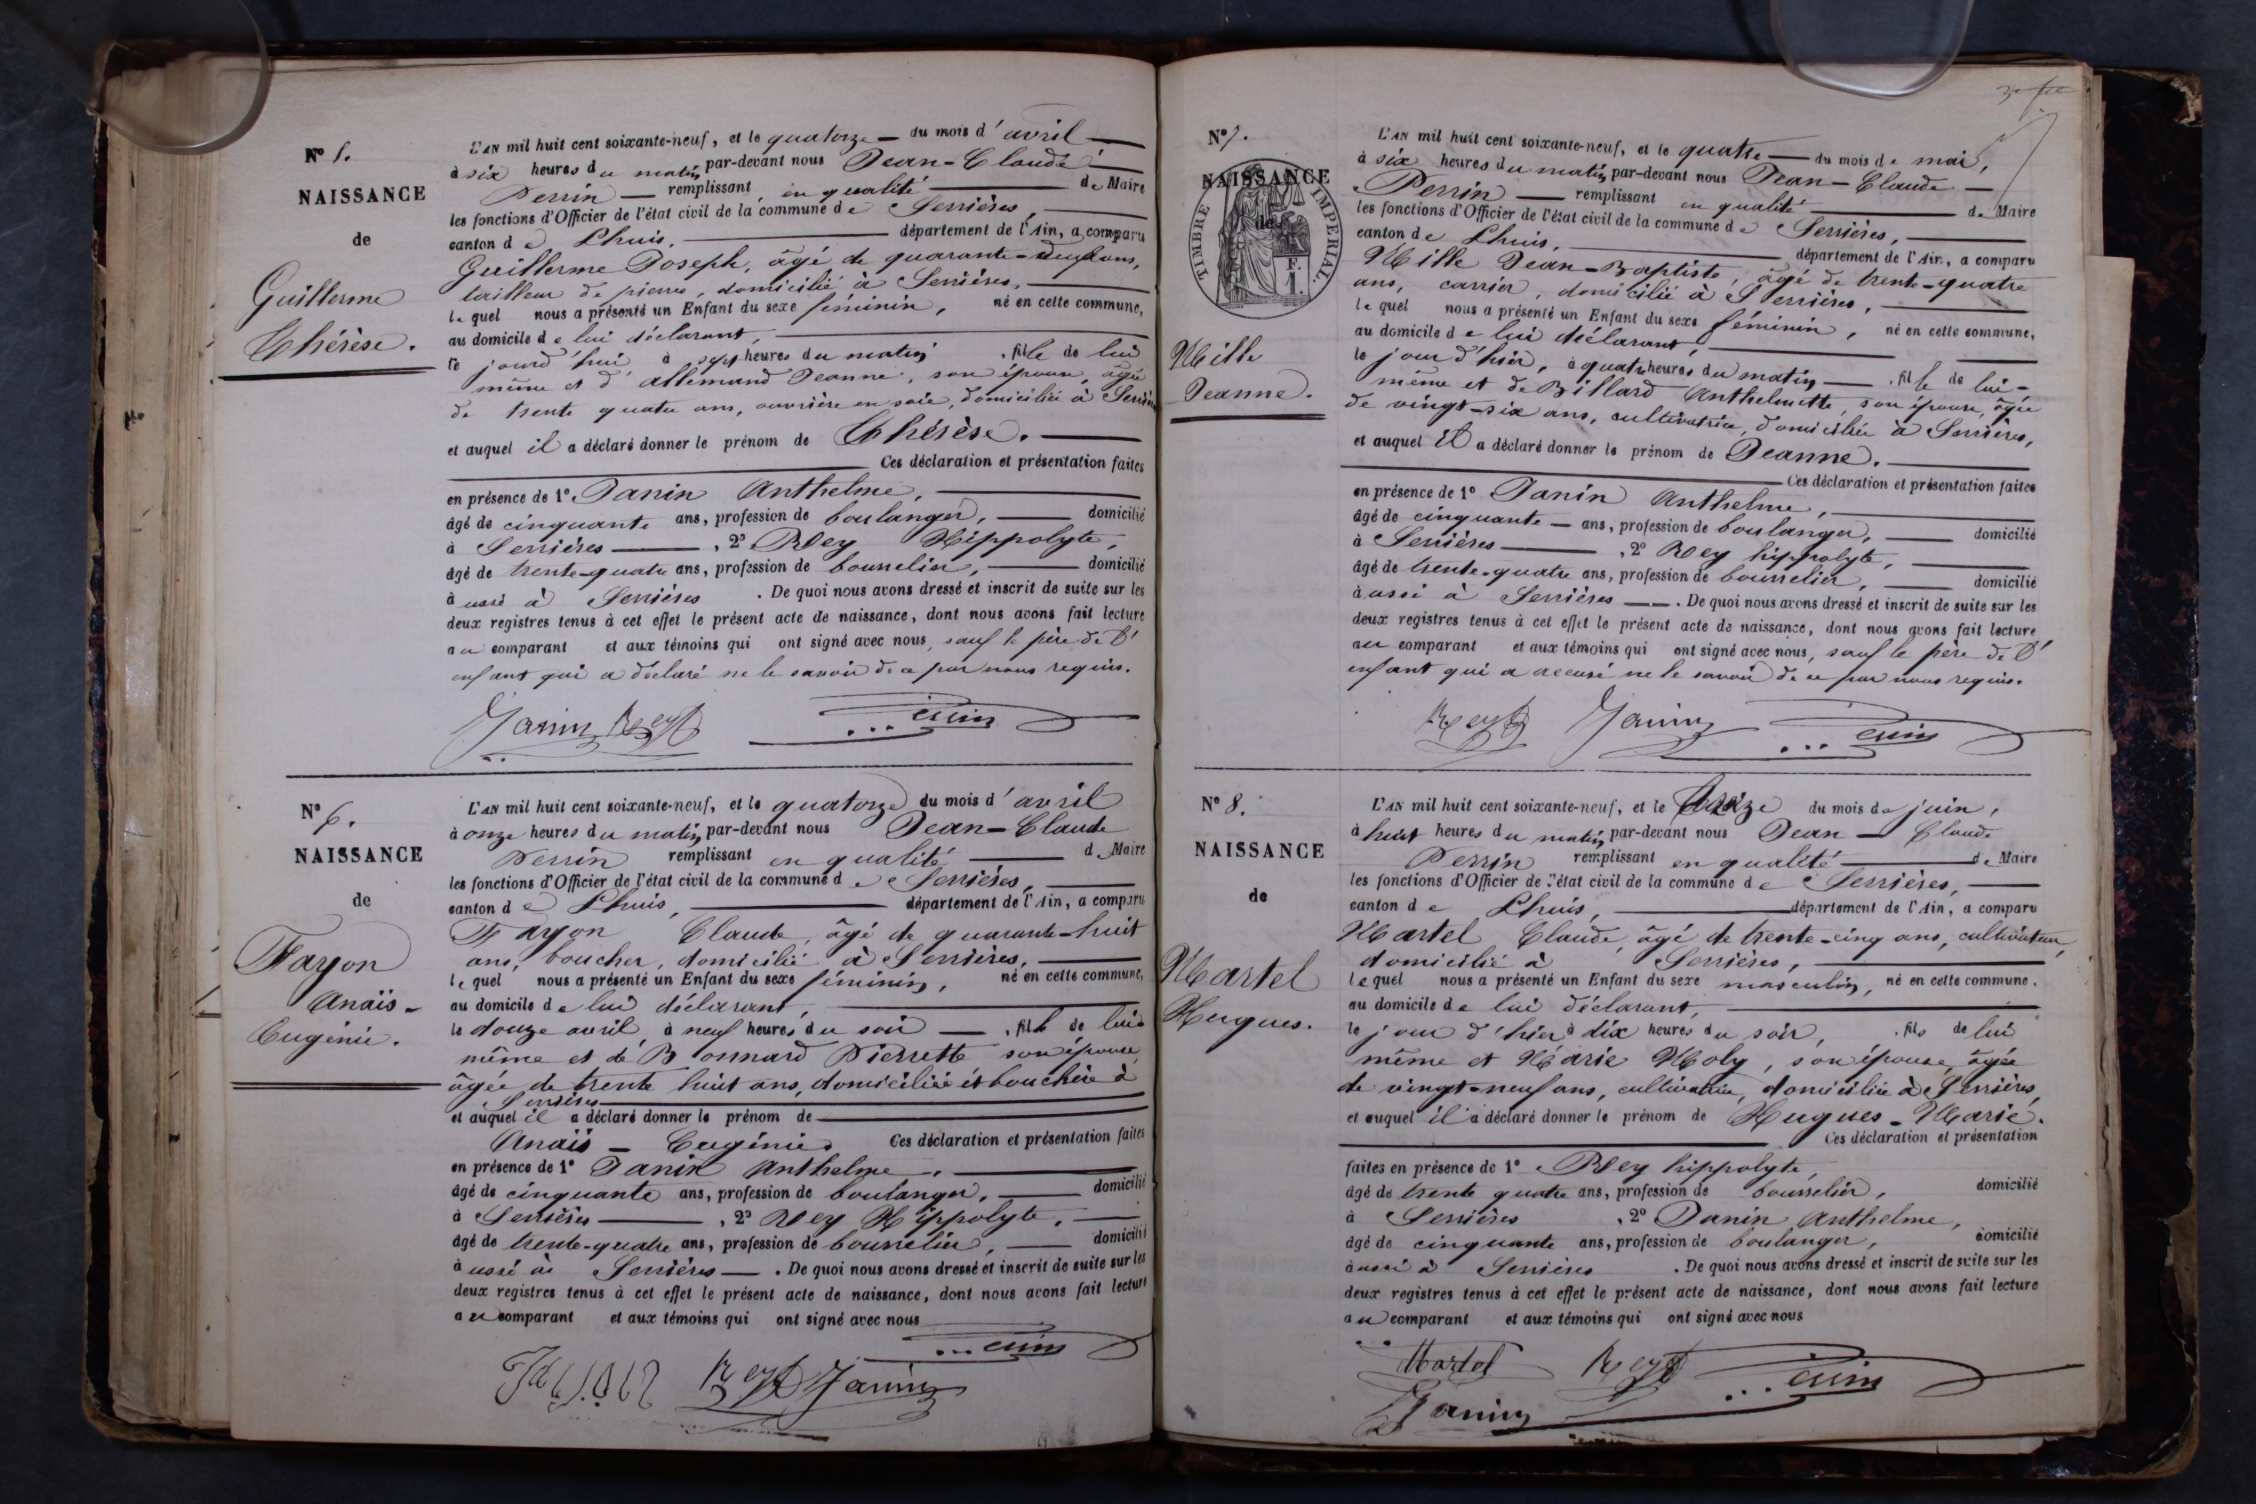 N° 5.
NAISSANCE
de
Guillerme
Thérèse.
L'AN mil huit cent soixante-neuf, et le quatorze du mois d'avril
à six heures du matin par-devant nous Jean-Claude
Perrin remplissant en qualité de Maire
les fonctions d'Officier de l'état civil de la commune de Serrières,
canton de Lhuis, département de l'Ain, a comparu
Guillerme Joseph, âgé de quarante-deux ans,
tailleur de pierres, domicilié à Serrières,
lequel nous a présenté un Enfant du sexe féminin, né en cette commune,
au domicile de lui déclarant,
le jourd'hui à sept heures du matin, fille de lui
même et d'Allemand Jeanne, son épouse, âgée
de trente quatre ans, ouvrière en soie, domiciliée à Serrières
et auquel il a déclaré donner le prénom de Thérèse.
Ces déclaration et présentation faites
en présence de 1° Janin Anthelme,
âgé de cinquante ans, profession de boulanger, domicilié
à Serrières, 2° Rey Hippolyte,
âgé de trente-quatre ans, profession de bourrelier, domicilié
à ussi à Serrières. De quoi nous avons dressé et inscrit de suite sur les
deux registres tenus à cet effet le présent acte de naissance, dont nous avons fait lecture
au comparant et aux témoins qui ont signé avec nous, sauf le père de l'
enfant qui a déclaré ne le savoir de ce par nous requis.
Janin Rey Perrin
N° 6.
NAISSANCE
de
Fayon
Anaïs-
Eugénie.
L'AN mil huit cent soixante-neuf, et le quatorze du mois d'avril
à onze heures du matin par-devant nous Jean-Claude
Perrin remplissant en qualité de Maire
les fonctions d'Officier de l'état civil de la commune de Serrières,
canton de Lhuis, département de l'Ain, a comparu
Fayon Claude, âgé de quarante-huit
ans, boucher, domicilié à Serrières,
lequel nous a présenté un Enfant du sexe féminin, né en cette commune,
au domicile de lui déclarant,
le douze avril à neuf heures du soir, fille de lui
même et de Bonnard Pierrette son épouse,
âgée de trente huit ans, domiciliée et bouchère à
Serrières
et auquel il a déclaré donner le prénom de
Anaïs - Eugénie. Ces déclaration et présentation faites
en présence de 1° Janin Anthelme,
âgé de cinquante ans, profession de boulanger, domicilié
à Serrières, 2° Rey Hippolyte,
âgé de trente-quatre ans, profession de bourrelier, domicilié
à ussi à Serrières. De quoi nous avons dressé et inscrit de suite sur les
deux registres tenus à cet effet le présent acte de naissance, dont nous avons fait lecture
au comparant et aux témoins qui ont signé avec nous
Perrin
Rey Janin
N° 7.
NAISSANCE
de
TIMBRE IMPERIAL
F.
1.
Mille
Jeanne.
L'AN mil huit cent soixante-neuf, et le quatre du mois de mai,
à six heures du matin par-devant nous Jean-Claude
Perrin remplissant en qualité de Maire
les fonctions d'Officier de l'état civil de la commune de Serrières,
canton de Lhuis, département de l'Ain, a comparu
Mille Jean-Baptiste, âgé de trente-quatre
ans, carrier, domicilié à Serrières,
lequel nous a présenté un Enfant du sexe féminin, né en cette commune,
au domicile de lui déclarant,
le jour d'hier, à quatre heures du matin, fille de lui-
même et de Billard Anthelmette, son épouse, âgée
de vingt-six ans, cultivatrice, domiciliée à Serrières,
et auquel il a déclaré donner le prénom de Jeanne.
Ces déclaration et présentation faites
en présence de 1° Janin Anthelme,
âgé de cinquante ans, profession de boulanger, domicilié
à Serrières, 2° Rey hippolyte,
âgé de trente-quatre ans, profession de bourrelier, domicilié
à ussi à Serrières. De quoi nous avons dressé et inscrit de suite sur les
deux registres tenus à cet effet le présent acte de naissance, dont nous avons fait lecture
au comparant et aux témoins qui ont signé avec nous, sauf le père de l'
enfant qui a accusé ne le savoir de ce par nous requis.
Rey Janin Perrin
N° 8.
NAISSANCE
de
Martel
Hugues.
L'AN mil huit cent soixante-neuf, et le du mois de juin,
à huit heures du matin par-devant nous Jean - Claude
Perrin remplissant en qualité de Maire
les fonctions d'Officier de l'état civil de la commune de Serrières,
canton de Lhuis, département de l'Ain, a comparu
Martel Claude, âgé de trente-cinq ans, cultivateur,
domicilié à Serrières,
lequel nous a présenté un Enfant du sexe masculin, né en cette commune.
au domicile de lui déclarant,
le jour d'hier à dix heures du soir, fils de lui
même et Marie Moly, son épouse, âgée
de vingt-neuf ans, cultivatrice, domiciliée à Serrières,
et auquel il a déclaré donner le prénom de Hugues-Marie.
Ces déclaration et présentation
faites en présence de 1° Rey hippolyte,
âgé de trente quatre ans, profession de bourrelier, domicilié
à Serrières, 2° Janin Anthelme,
âgé de cinquante ans, profession de boulanger, domicilié
à ussi à Serrières. De quoi nous avons dressé et inscrit de suite sur les
deux registres tenus à cet effet le présent acte de naissance, dont nous avons fait lecture
au comparant et aux témoins qui ont signé avec nous
Martel Rey Perrin
Janin